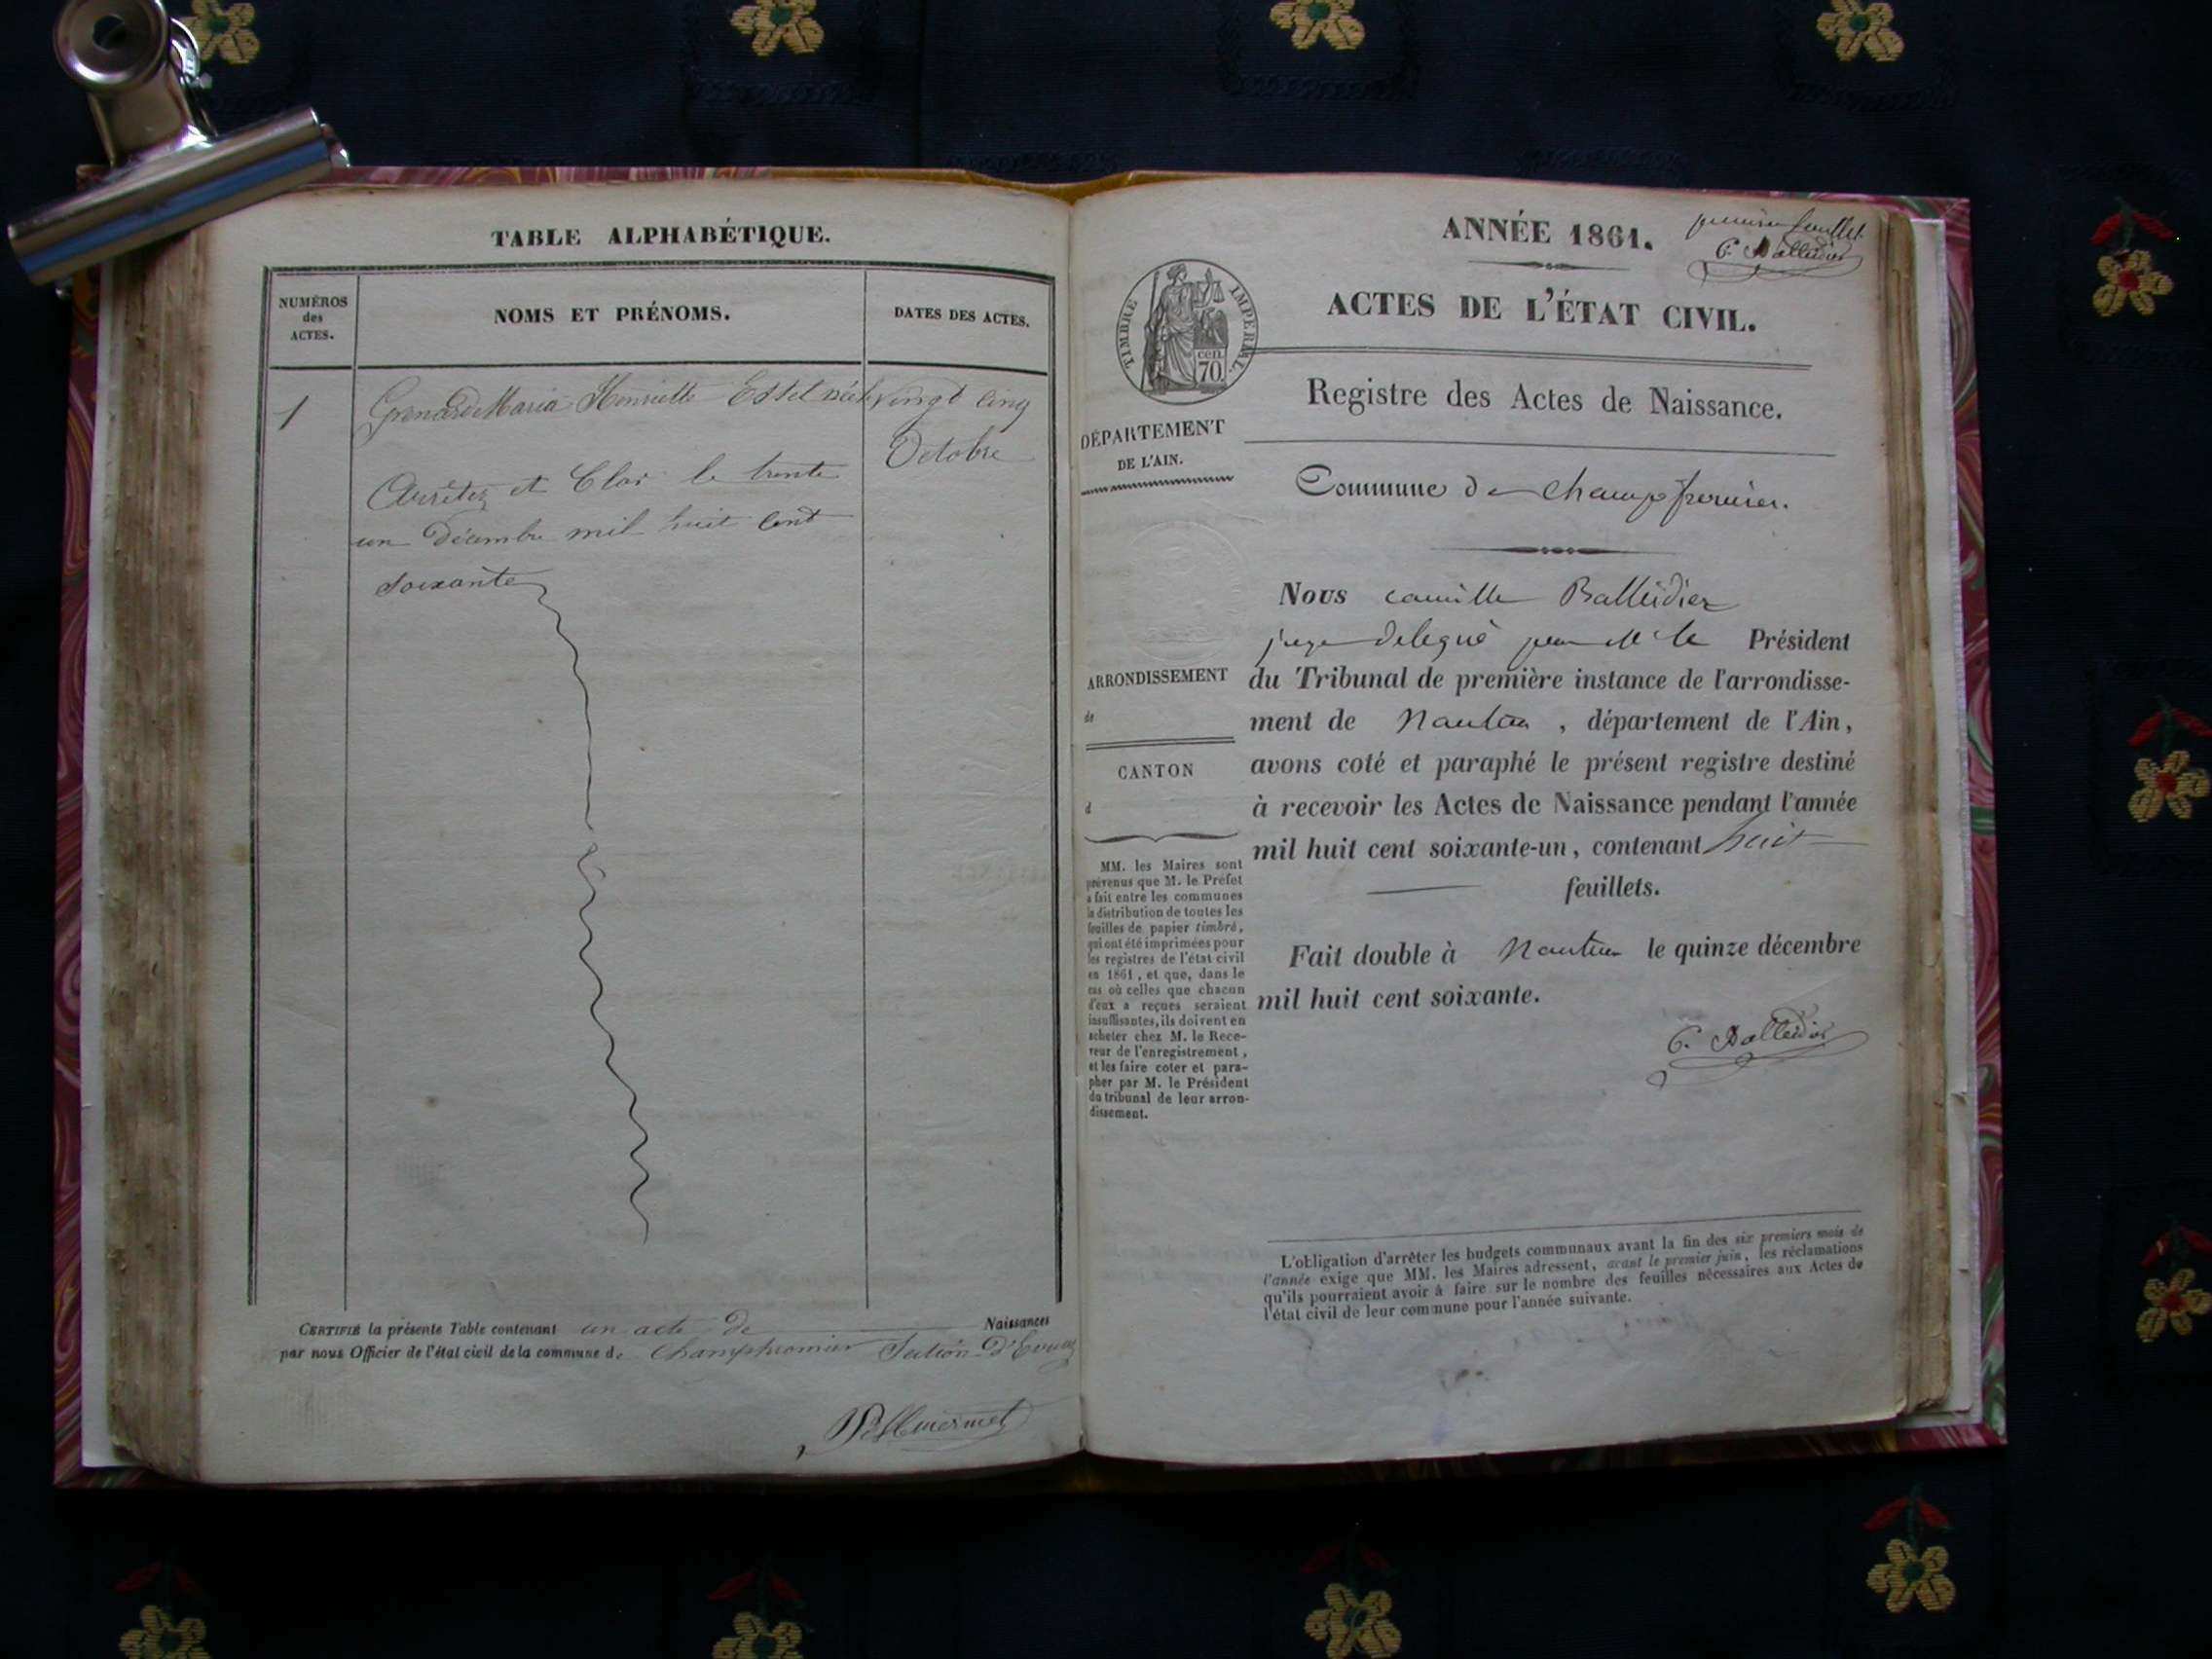 TABLE ALPHABÉTIQUE.
NUMÉROS
des
ACTES.
NOMS ET PRÉNOMS.
DATES DES ACTES.
1
Grenard Maria Henriette Estel vingt cinq
Octobre
Arrêter et Clos le trente
un Décembre mil huit Cent
Soixante
CERTIFIÉ la présente Table contenant un acte de Naissances
par nous Officier de l'état civil de la commune de Champfromier Section
ANNÉE 1861.
premier feuillet
C. Balleidier
ACTES DE L'ÉTAT CIVIL.
TIMBRE IMPERIAL
cen.
70.
Registre des Actes de Naissance.
DÉPARTEMENT
DE L'AIN.
Commune de champfromier.
Nous camille Balleidier
juge delegué par M. le Président
ARRONDISSEMENT
du Tribunal de première instance de l'arrondisse-
de
ment de Nantua , département de l'Ain,
CANTON
avons coté et paraphé le présent registre destiné
d
à recevoir les Actes de Naissance pendant l'année
mil huit cent soixante-un, contenant huit
feuillets.
MM. les Maires sont
prévenus que M. le Préfet
a fait entre les communes
la distribution de toutes les
feuilles de papier timbré,
qui ont été imprimées pour
les registres de l'état civil
en 1861, et que, dans le
cas où celles que chacun
d'eux a reçues seraient
insuffisantes, ils doivent en
acheter chez M. le Rece-
veur de l'enregistrement,
et les faire coter et para-
pher par M. le Président
du tribunal de leur arron-
dissement.
Fait double à Nantua le quinze décembre
mil huit cent soixante.
C. Balleidier
L'obligation d'arrêter les budgets communaux avant la fin des six premiers mois de
l'année exige que MM. les Maires adressent, avant le premier juin, les réclamations
qu'ils pourraient avoir à faire sur le nombre des feuilles nécessaires aux Actes de
l'état civil de leur commune pour l'année suivante.